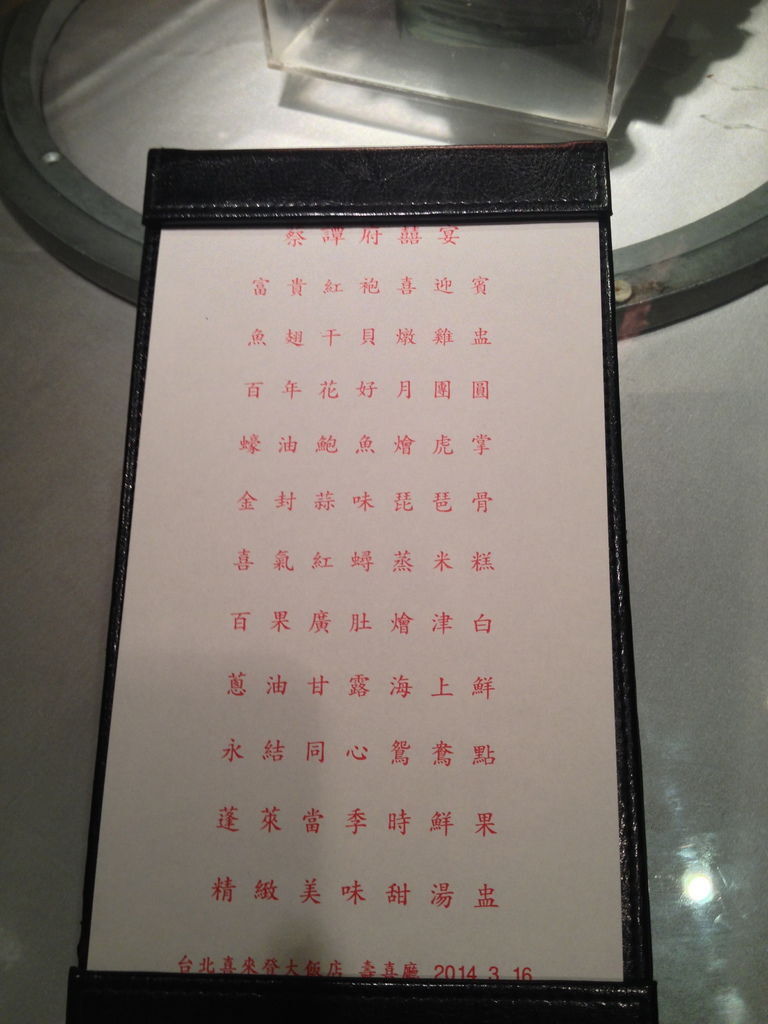 蔡譚府囍宴
富貴紅袍喜迎賓
魚翅干貝燉雞盅
百年花好月團圓
蠔油鮑魚燴虎掌
金封蒜味琵琶骨
喜氣紅蟳蒸米糕
百果廣肚燴津白
蔥油甘露海上鮮
永結同心鴛鴦點
蓬萊當季時鮮果
精緻美味甜湯盅
台北喜來登大飯店 壽喜廳 2014.3.16